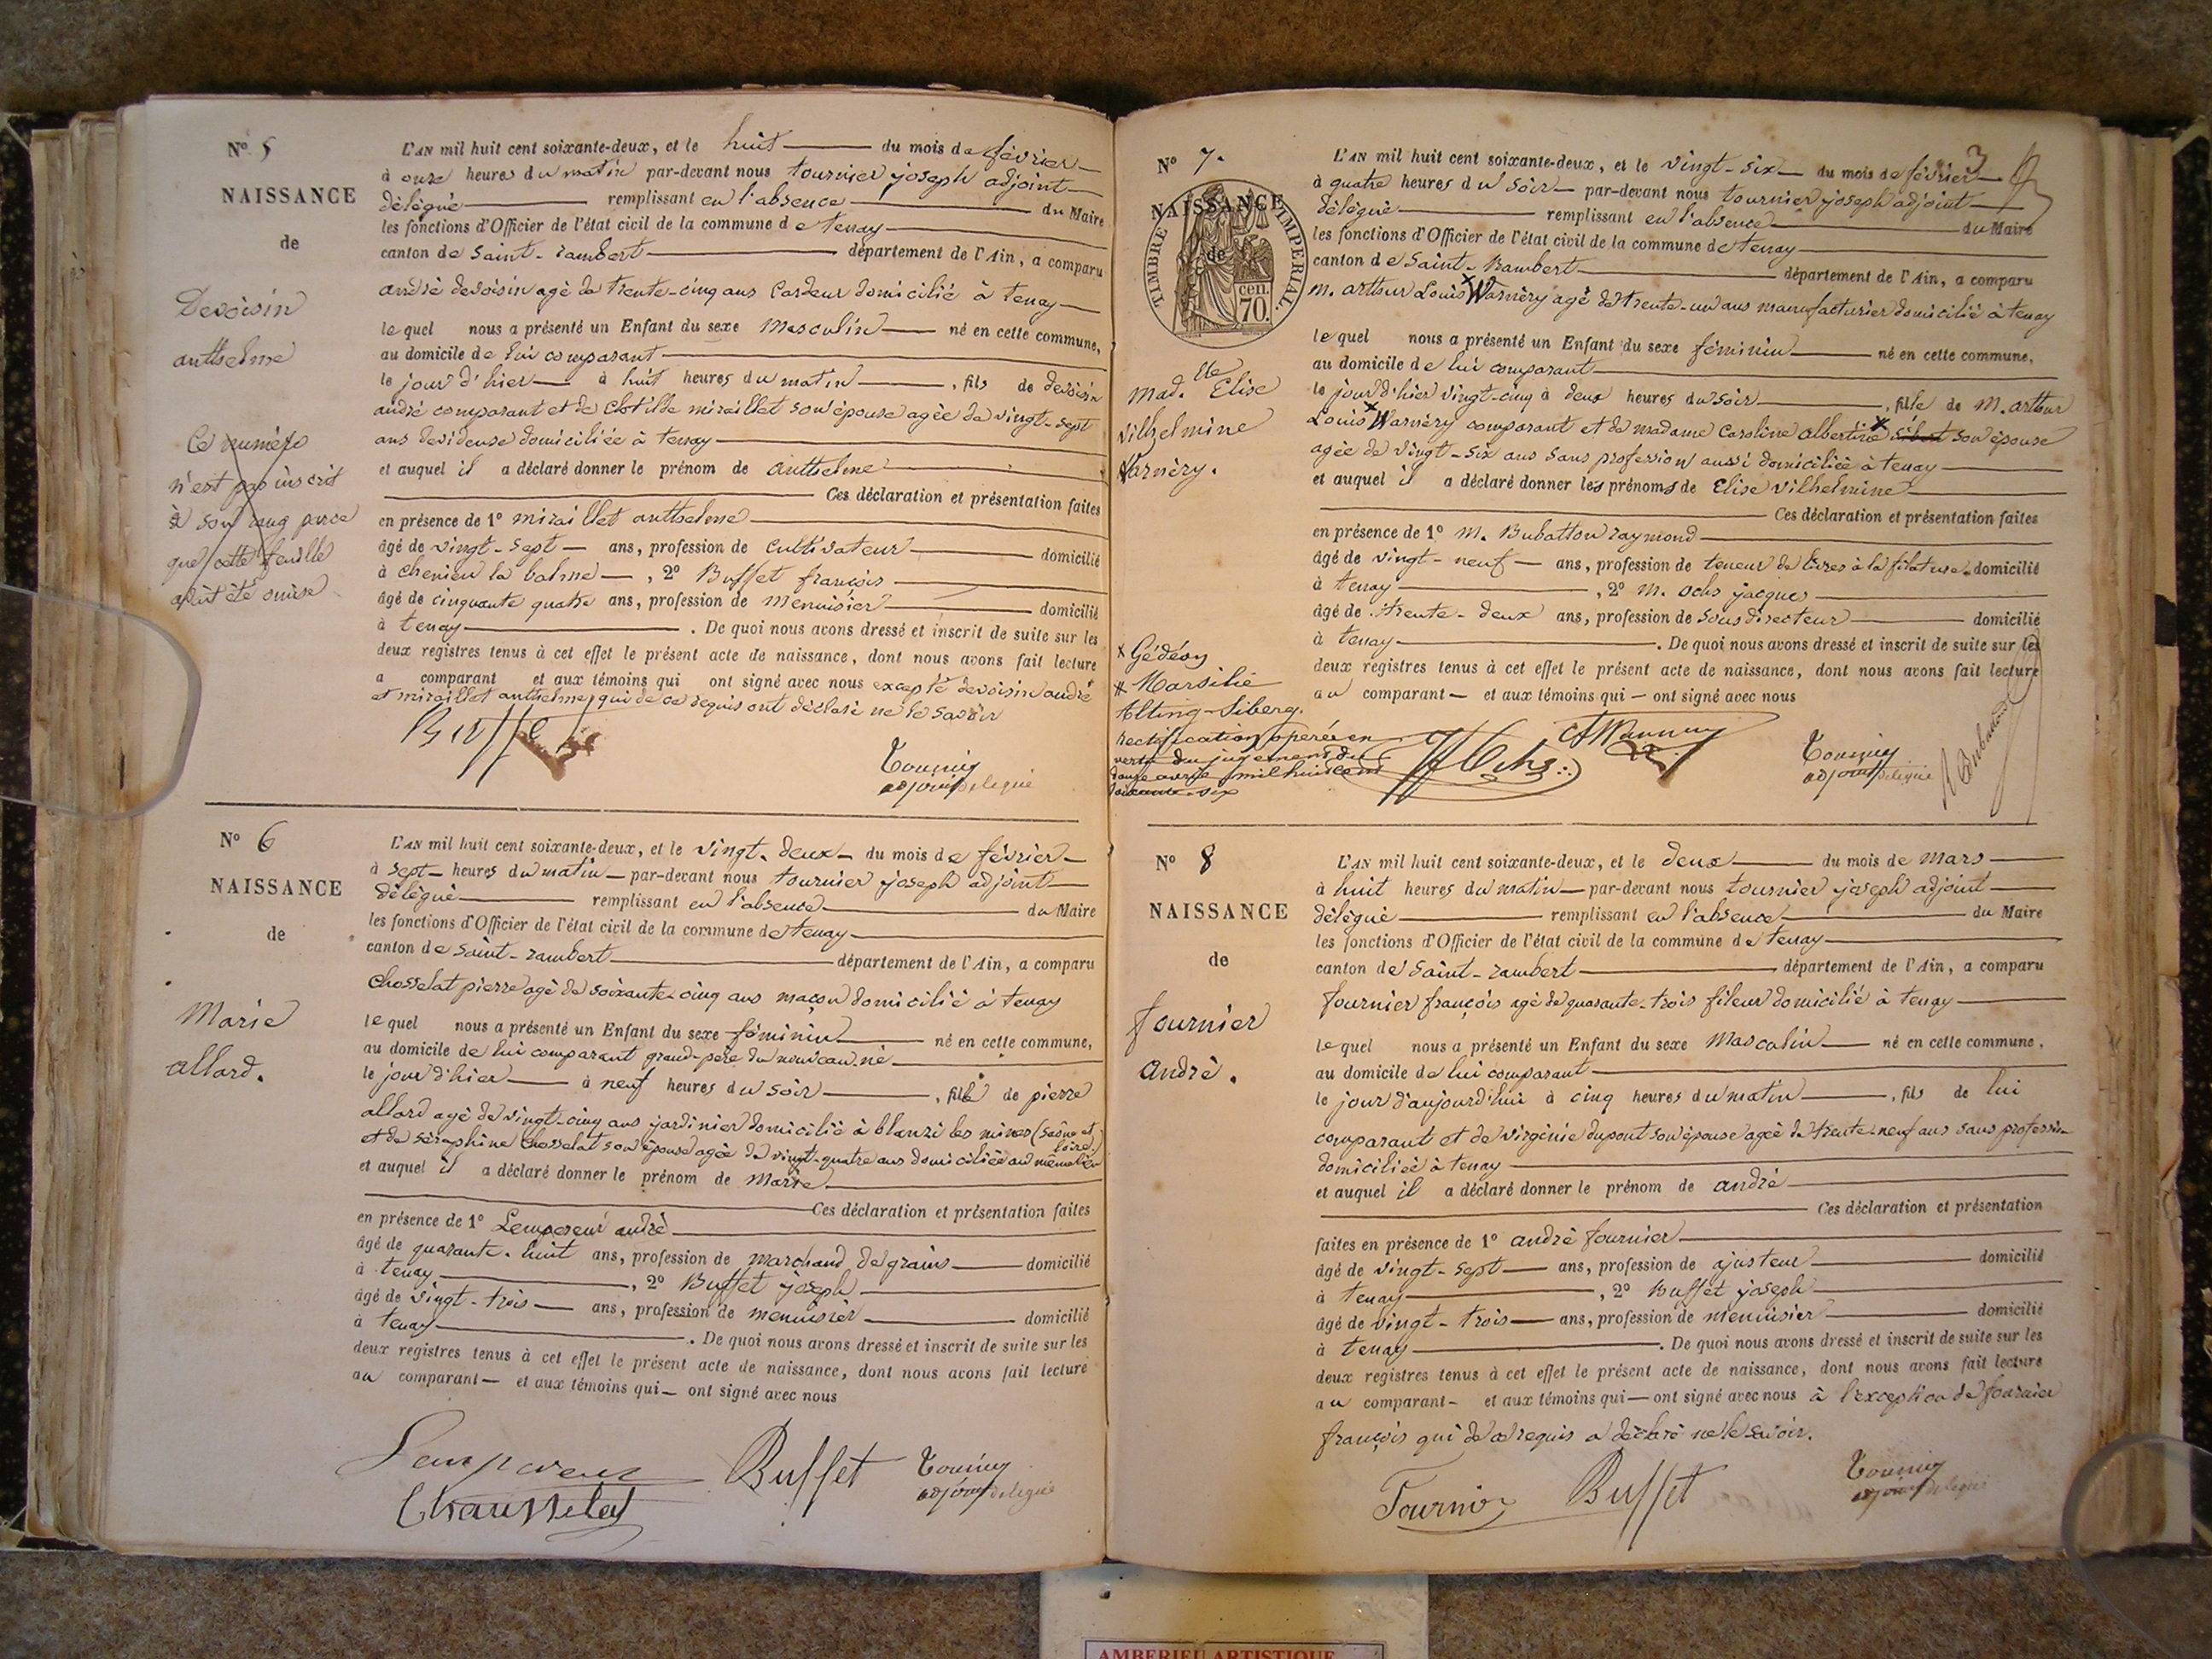 Nº 5
NAISSANCE
de
Devoisin
anthelme
Ce numéro
n'est pas inscrit
à son rang parce
que cette feuille
avait été omise
L'AN mil huit cent soixante-deux, et le huit du mois de février
à onze heures du matin par-devant nous tournier joseph adjoint
délégué remplissant en l'absence du Maire
les fonctions d'Officier de l'état civil de la commune de tenay
canton de Saint-rambert département de l'Ain, a comparu
andré devoisin agé de trente-cinq ans Cardeur domicilié à tenay
lequel nous a présenté un Enfant du sexe Masculin né en cette commune,
au domicile de lui comparant
le jour d'hier à huit heures du matin, fils de devoisin
andré comparant et de Clotilde miraillet son épouse agée de vingt-sept
ans devideuse domiciliée à tenay
et auquel il a déclaré donner le prénom de anthelme
Ces déclaration et présentation faites
en présence de 1º miraillet anthelme
âgé de vingt-sept ans, profession de Cultivateur domicilié
à chenieu la balme, 2º Buffet françois
âgé de cinquante quatre ans, profession de menuisier domicilié
à tenay. De quoi nous avons dressé et inscrit de suite sur les
deux registres tenus à cet effet le présent acte de naissance, dont nous avons fait lecture
a comparant et aux témoins qui ont signé avec nous excepté devoisin andré
et miraillet anthelme qui de ce requis ont déclaré ne le savoir
Buffet
Tournier
adjoint délégué
Nº 6
NAISSANCE
de
Marie
allard.
L'AN mil huit cent soixante-deux, et le vingt-deux du mois de février
à sept heures du matin par-devant nous tournier joseph adjoint
délégué remplissant en l'absence du Maire
les fonctions d'Officier de l'état civil de la commune de tenay
canton de saint-rambert département de l'Ain, a comparu
Chosselat pierre agé de soixante-cinq ans maçon domicilié à tenay
lequel nous a présenté un Enfant du sexe féminin né en cette commune,
au domicile de lui comparant grand-père du nouveau-né
le jour d'hier à neuf heures du soir, fille de pierre
allard agé de vingt-cinq ans jardinier domicilié à blanzi les mines (Saône et
loire)
et de séraphine Chosselat son épouse agée de vingt-quatre ans domiciliée au même lieu
et auquel il a déclaré donner le prénom de Marie
Ces déclaration et présentation faites
en présence de 1º Lempereur andré
âgé de quarante-huit ans, profession de marchand de grains domicilié
à tenay, 2º Buffet joseph
âgé de vingt-trois ans, profession de menuisier domicilié
à tenay. De quoi nous avons dressé et inscrit de suite sur les
deux registres tenus à cet effet le présent acte de naissance, dont nous avons fait lecture
au comparant et aux témoins qui ont signé avec nous
Lempereur Buffet Tournier
adjoint délégué
Chausselat
3
Nº 7.
NAISSANCE
de
TIMBRE IMPERIAL.
70 cen.
Mad.lle Elise
Vilhelmine
Warnéry.
x Gédéon
# Marsilie
Alting-Siberg.
Rectification opérée en
vertu du jugement du
douze avril mil huit cent
soixante-six
L'AN mil huit cent soixante-deux, et le vingt-six du mois de février
à quatre heures du soir par-devant nous tournier joseph adjoint
délégué remplissant en l'absence du Maire
les fonctions d'Officier de l'état civil de la commune de tenay
canton de Saint-Rambert département de l'Ain, a comparu
M. arthur Louis x Warnéry agé de trente-un ans manufacturier domicilié à tenay
lequel nous a présenté un Enfant du sexe féminin né en cette commune,
au domicile de lui comparant
le jour d'hier vingt-cinq à deux heures du soir, fille de M. arthur
Louis x Warnéry comparant et de madame Caroline albertine x sibert son épouse
agée de vingt-six ans sans profession aussi domiciliée à tenay
et auquel il a déclaré donner les prénoms de Elise vilhelmine
Ces déclaration et présentation faites
en présence de 1º M. Bubatton raymond
âgé de vingt-neuf ans, profession de teneur de livres à la filature domicilié
à tenay, 2º M. ochs jacques
âgé de trente-deux ans, profession de sous directeur domicilié
à tenay. De quoi nous avons dressé et inscrit de suite sur les
deux registres tenus à cet effet le présent acte de naissance, dont nous avons fait lecture
au comparant et aux témoins qui ont signé avec nous
Tournier
adjoint délégué
Nº 8
NAISSANCE
de
fournier
andré.
L'AN mil huit cent soixante-deux, et le deux du mois de mars
à huit heures du matin par-devant nous tournier joseph adjoint
délégué remplissant en l'absence du Maire
les fonctions d'Officier de l'état civil de la commune de tenay
canton de Saint-rambert département de l'Ain, a comparu
fournier françois agé de quarante-trois fileur domicilié à tenay
lequel nous a présenté un Enfant du sexe Masculin né en cette commune,
au domicile de lui comparant
le jour d'aujourd'hui à cinq heures du matin, fils de lui
comparant et de virginie dupont son épouse agée de trente-neuf ans sans profession
domiciliée à tenay
et auquel il a déclaré donner le prénom de andré
Ces déclaration et présentation
faites en présence de 1º andré fournier
âgé de vingt-sept ans, profession de ajusteur domicilié
à tenay, 2º Buffet joseph
âgé de vingt-trois ans, profession de menuisier domicilié
à tenay. De quoi nous avons dressé et inscrit de suite sur les
deux registres tenus à cet effet le présent acte de naissance, dont nous avons fait lecture
au comparant et aux témoins qui ont signé avec nous à l'exception de fournier
françois qui de ce requis a déclaré ne le savoir.
Fournier Buffet Tournier
adjoint délégué
AMBERIEU ARTISTIQUE